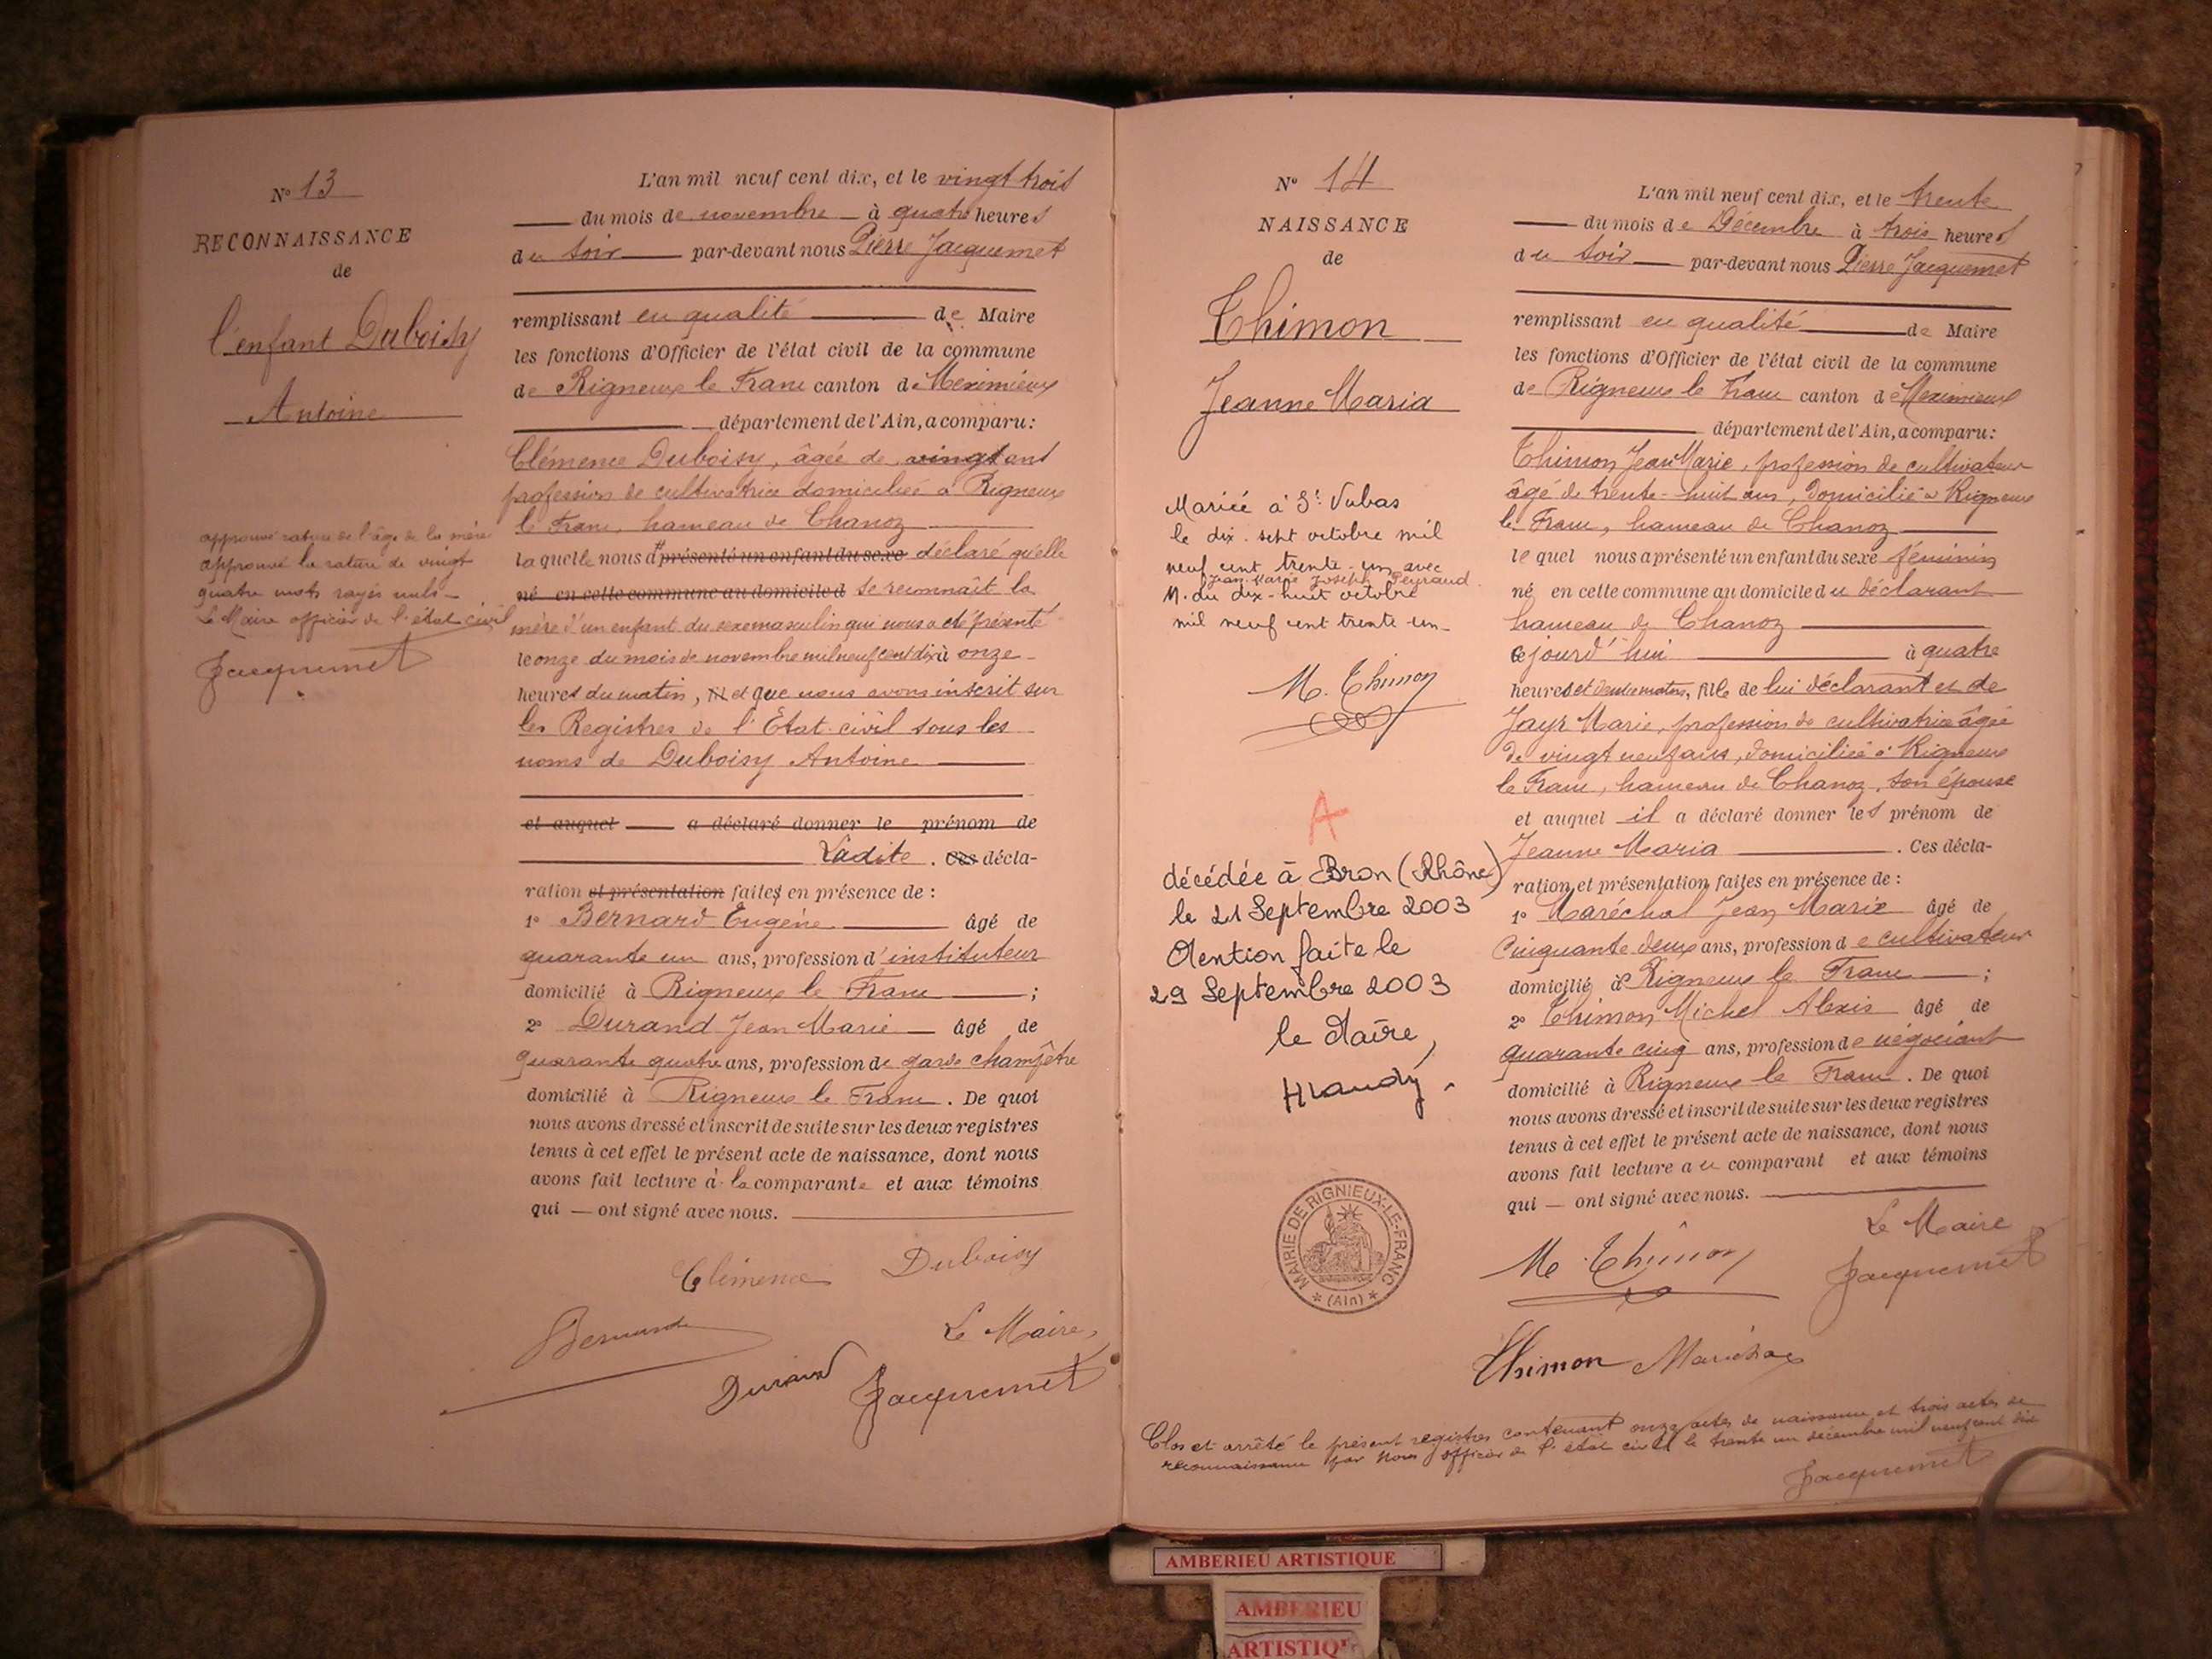 N° 13
RECONNAISSANCE
de
l'enfant Duboisy
Antoine
approuvé rature de l'âge de la mère
approuvé la rature de vingt
quatre mots rayés nuls -
Le Maire officier de l'état civil
Jacquemet
L'an mil neuf cent dix, et le vingt trois
du mois de novembre à quatre heures
du soir par-devant nous Pierre Jacquemet
remplissant en qualité de Maire
les fonctions d'Officier de l'état civil de la commune
de Rigneux le Franc canton de Meximieux
département de l'Ain, a comparu:
Clémence Duboisy, âgée de vingt ans
profession de cultivatrice domiciliée à Rigneux
le Franc, hameau de Chanoz
laquelle nous a présenté un enfant du sexe déclaré qu'elle
né en cette commune au domicile d se reconnaît la
mère d'un enfant du sexe masculin qui nous a été présenté
le onze du mois de novembre mil neuf cent dix à onze
heures du matin, et que nous avons inscrit sur
les Registres de l'État-civil sous les
noms de Duboisy Antoine
et auquel a déclaré donner le prénom de
Ladite. Ces décla-
ration et présentation faites en présence de :
1° Bernard Eugène âgé de
quarante un ans, profession d'instituteur
domicilié à Rigneux le Franc ;
2° Durand Jean Marie âgé de
quarante quatre ans, profession de garde champêtre
domicilié à Rigneux le Franc. De quoi
nous avons dressé et inscrit de suite sur les deux registres
tenus à cet effet le présent acte de naissance, dont nous
avons fait lecture à la comparante et aux témoins
qui — ont signé avec nous.
Clémence Duboisy
Bernard
Le Maire,
Durand Jacquemet
N° 14
NAISSANCE
de
Thimon
Jeanne Maria
Mariée à St Vulbas
le dix-sept octobre mil
neuf cent trente-un avec
Jean-Marie Joseph Peyraud.
M. du dix-huit octobre
mil neuf cent trente-un-
M. Thimon
A
décédée à Bron (Rhône)
le 21 Septembre 2003
Mention faite le
29 Septembre 2003
le Maire,
MAIRIE DE RIGNIEUX-LE-FRANC
* (Ain) *
L'an mil neuf cent dix, et le trente
du mois de Décembre à trois heures
du soir par-devant nous Pierre Jacquemet
remplissant en qualité de Maire
les fonctions d'Officier de l'état civil de la commune
de Rigneux le Franc canton de Meximieux
département de l'Ain, a comparu:
Thimon Jean Marie, profession de cultivateur
âgé de trente-huit ans, domicilié à Rigneux
le Franc, hameau de Chanoz
lequel nous a présenté un enfant du sexe féminin
né en cette commune au domicile du déclarant
hameau de Chanoz
ce jourd'hui à quatre
heures et demie matin, fille de lui déclarant et de
Jayr Marie, profession de cultivatrice âgée
de vingt neuf ans, domiciliée à Rigneux
le Franc, hameau de Chanoz, son épouse
et auquel il a déclaré donner les prénom de
Jeanne Maria. Ces décla-
ration et présentation faites en présence de :
1° Maréchal Jean Marie âgé de
cinquante deux ans, profession de cultivateur
domicilié à Rigneux le Franc ;
2° Thimon Michel Alexis âgé de
quarante cinq ans, profession de négociant
domicilié à Rigneux le Franc. De quoi
nous avons dressé et inscrit de suite sur les deux registres
tenus à cet effet le présent acte de naissance, dont nous
avons fait lecture au comparant et aux témoins
qui — ont signé avec nous.
Le Maire
M. Thimon Jacquemet
Thimon Maréchal
Clos et arrêté le présent registre contenant onze actes de naissance et trois actes de
reconnaissance par Nous officier de l'état civil le trente un décembre mil neuf cent dix
Jacquemet
AMBERIEU ARTISTIQUE
AMBERIEU
ARTISTIQUE